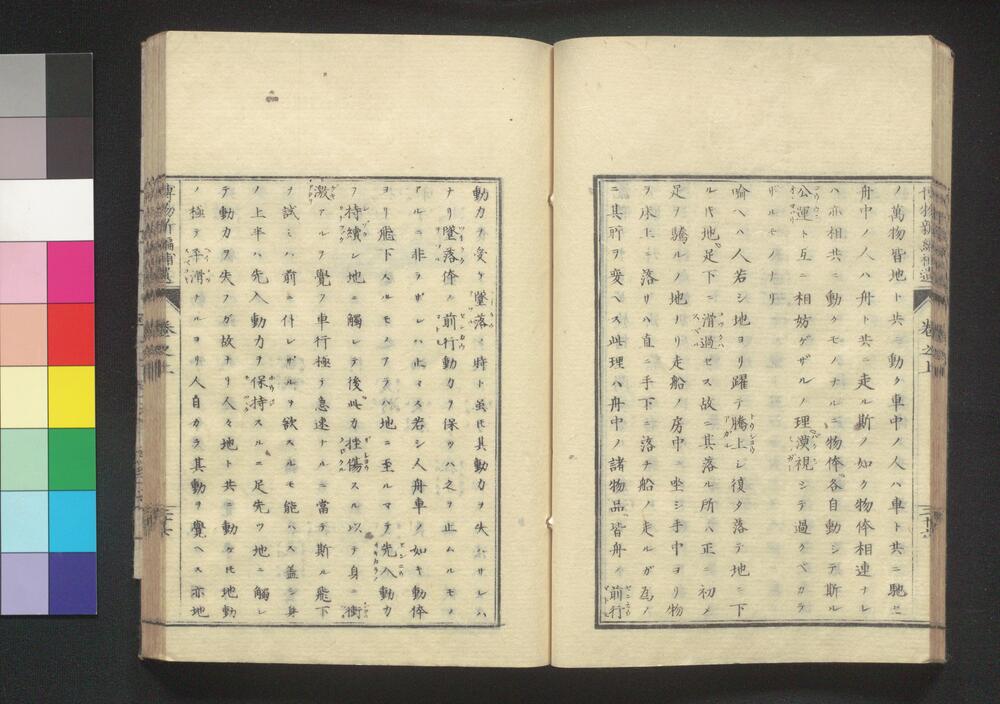 博物新編補遺 巻之上
ノ萬物皆地ト共ニ動ク車中ノ人ハ車ト共ニ馳セ
舟中ノ人ハ舟ト共ニ走ル斯ノ如ク物体相連ナレ
ハ亦相共ニ動クモノナルニ物体各自動シテ斯ル
公運ト互ニ相妨ゲザルノ理漠視シテ過クベカラ
ザルモノナリ
喩ヘハ人若シ地ヨリ躍テ騰上シ復タ落テ地ニ下
ルモ地足下ニ滑過セス故ニ其落ル所ハ正ニ初メ
足ヲ驕ルノ地ナリ走船ノ房中ニ坐シ手中ヨリ物
ヲ床上ニ落サハ直ニ手下ニ落チ船ノ走ルガ為ノ
ニ其所ヲ変ヘス此理ハ舟中ノ諸物品皆舟ノ前行
動力ヲ受ケ墜落ノ時ト虽モ其動力ヲ失ハサレハ
ナリ墜落体ノ前行動力ヲ保ツハ之ヲ止ムルモノ
アルニ非ラザレハ止マス若シ人舟車ノ如キ動体
ヨリ飛下スルモノアラハ地ニ至ルマテ先入動力
ヲ持續シ地ニ觸レテ後此力挫傷スル以テ身ニ衝
激アルヲ覺フ車行極テ急速ナルニ當テ斯ル飛下
ヲ試ミハ前ニ仆レザルヲ欲スルモ能ハス蓋シ身
ノ上半ハ先入動力ヲ保持スルニ足先ツ地ニ觸レ
テ動力ヲ失フガ故ナリ人々地ト共ニ動ケ圧地動
ノ極テ平滑ナルヨリ人自カラ其動ヲ覺ヘス亦地
博物新編補遺 巻之上